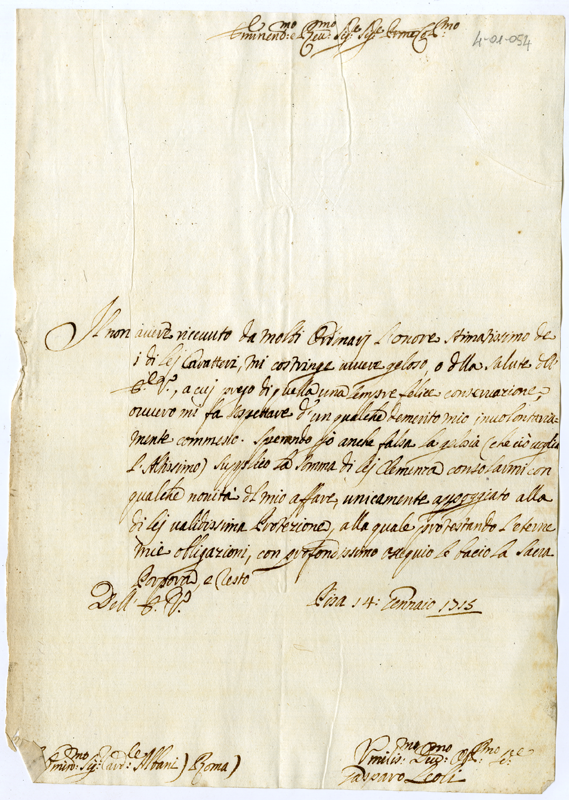 Eminend:mo e Rev:mo Sig:re Sig:re Prne Col:mo
4-01-054
Il non avere ricevuto da molti Ordinarj l'onore stimatissimo de
i di lei Caratteri, mi costringe vivere geloso, o della salute dell'
E. V., a cui prego di quella una sempre felice conservazione,
ovvero mi fa sospettare d'un qualche demerito mio involontaria-
mente commesso. Sperando io anche falsa la gelosia (che ciò voglia
l'Altissimo) supplico la somma di lei Clemenza consolarmi con
qualche novità del mio affare, unicamente appoggiato alla
di lei validissima Protezione, alla quale protestando l'eterne
mie obligazioni, con profondissimo ossequio le bacio la Sacra
Porpora, e resto
Dell' E. V.
Pisa 14: Gennaio 1715
Sig: Card:le Albani) (Roma)
Umilis:mo
Gasparo Leoli